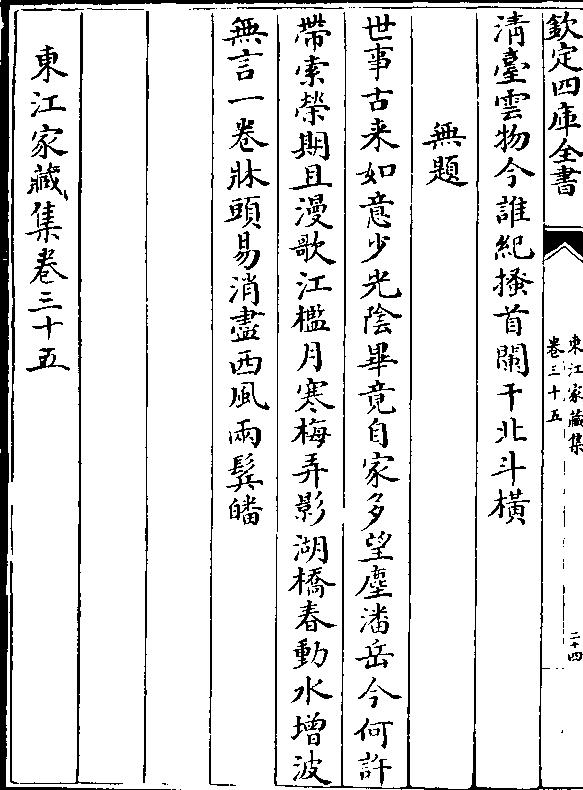 欽定四庫全書
東江家藏集
卷三十五
二十四
淸臺雲物今誰紀搔首闌干北斗橫
無題
世事古来如意少光陰畢竟自家多望塵潘岳今何許
帶索榮期且漫歌江檻月寒梅弄影湖橋春動水增波
無言一卷牀頭易消盡西風兩鬂皤
東江家藏集卷三十五